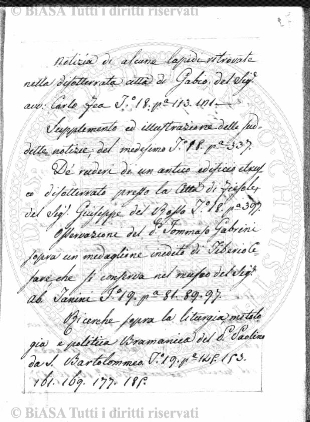 © BiASA Tutti i diritti riservati
Notizia di alcune lapidi ritrovate
nella disotterrata città di Gabio. del Sigr
avv: Carlo Fea T.º 18. pª 113. 401.
Supplemento ed illustrazione delle sud-
dette notizie del medesimo T.º 18. pª 337.
De ruderi di un antico edificio
co disotterrato presso la Città di Fiesole,
del Sigr Giuseppe del Rosso T.º 18. pª 397.
Osservazione del Dr Tommaso Gabrini
sopra un medaglione inedito di Tiberio Ce
sare, che si conserva nel museo del Sigr
Ab. Tanini T.º 19. pª 81. 89. 97.
Ricerche sopra la liturgia, mitolo
gia e politica Bramanica del P. Paolino
da S. Bartolommeo T.º 19. pª 145. 153.
161. 169. 177. 185.
© BiASA Tutti i diritti riservati